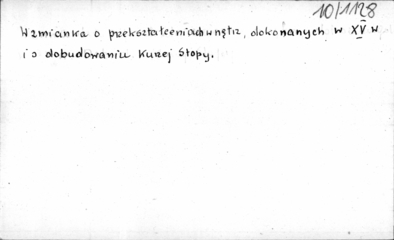 10/1128
Wzmianka o przekształceniach wnętrz, dokonanych w XV w
i o dobudowaniu Kurzej Stopy.